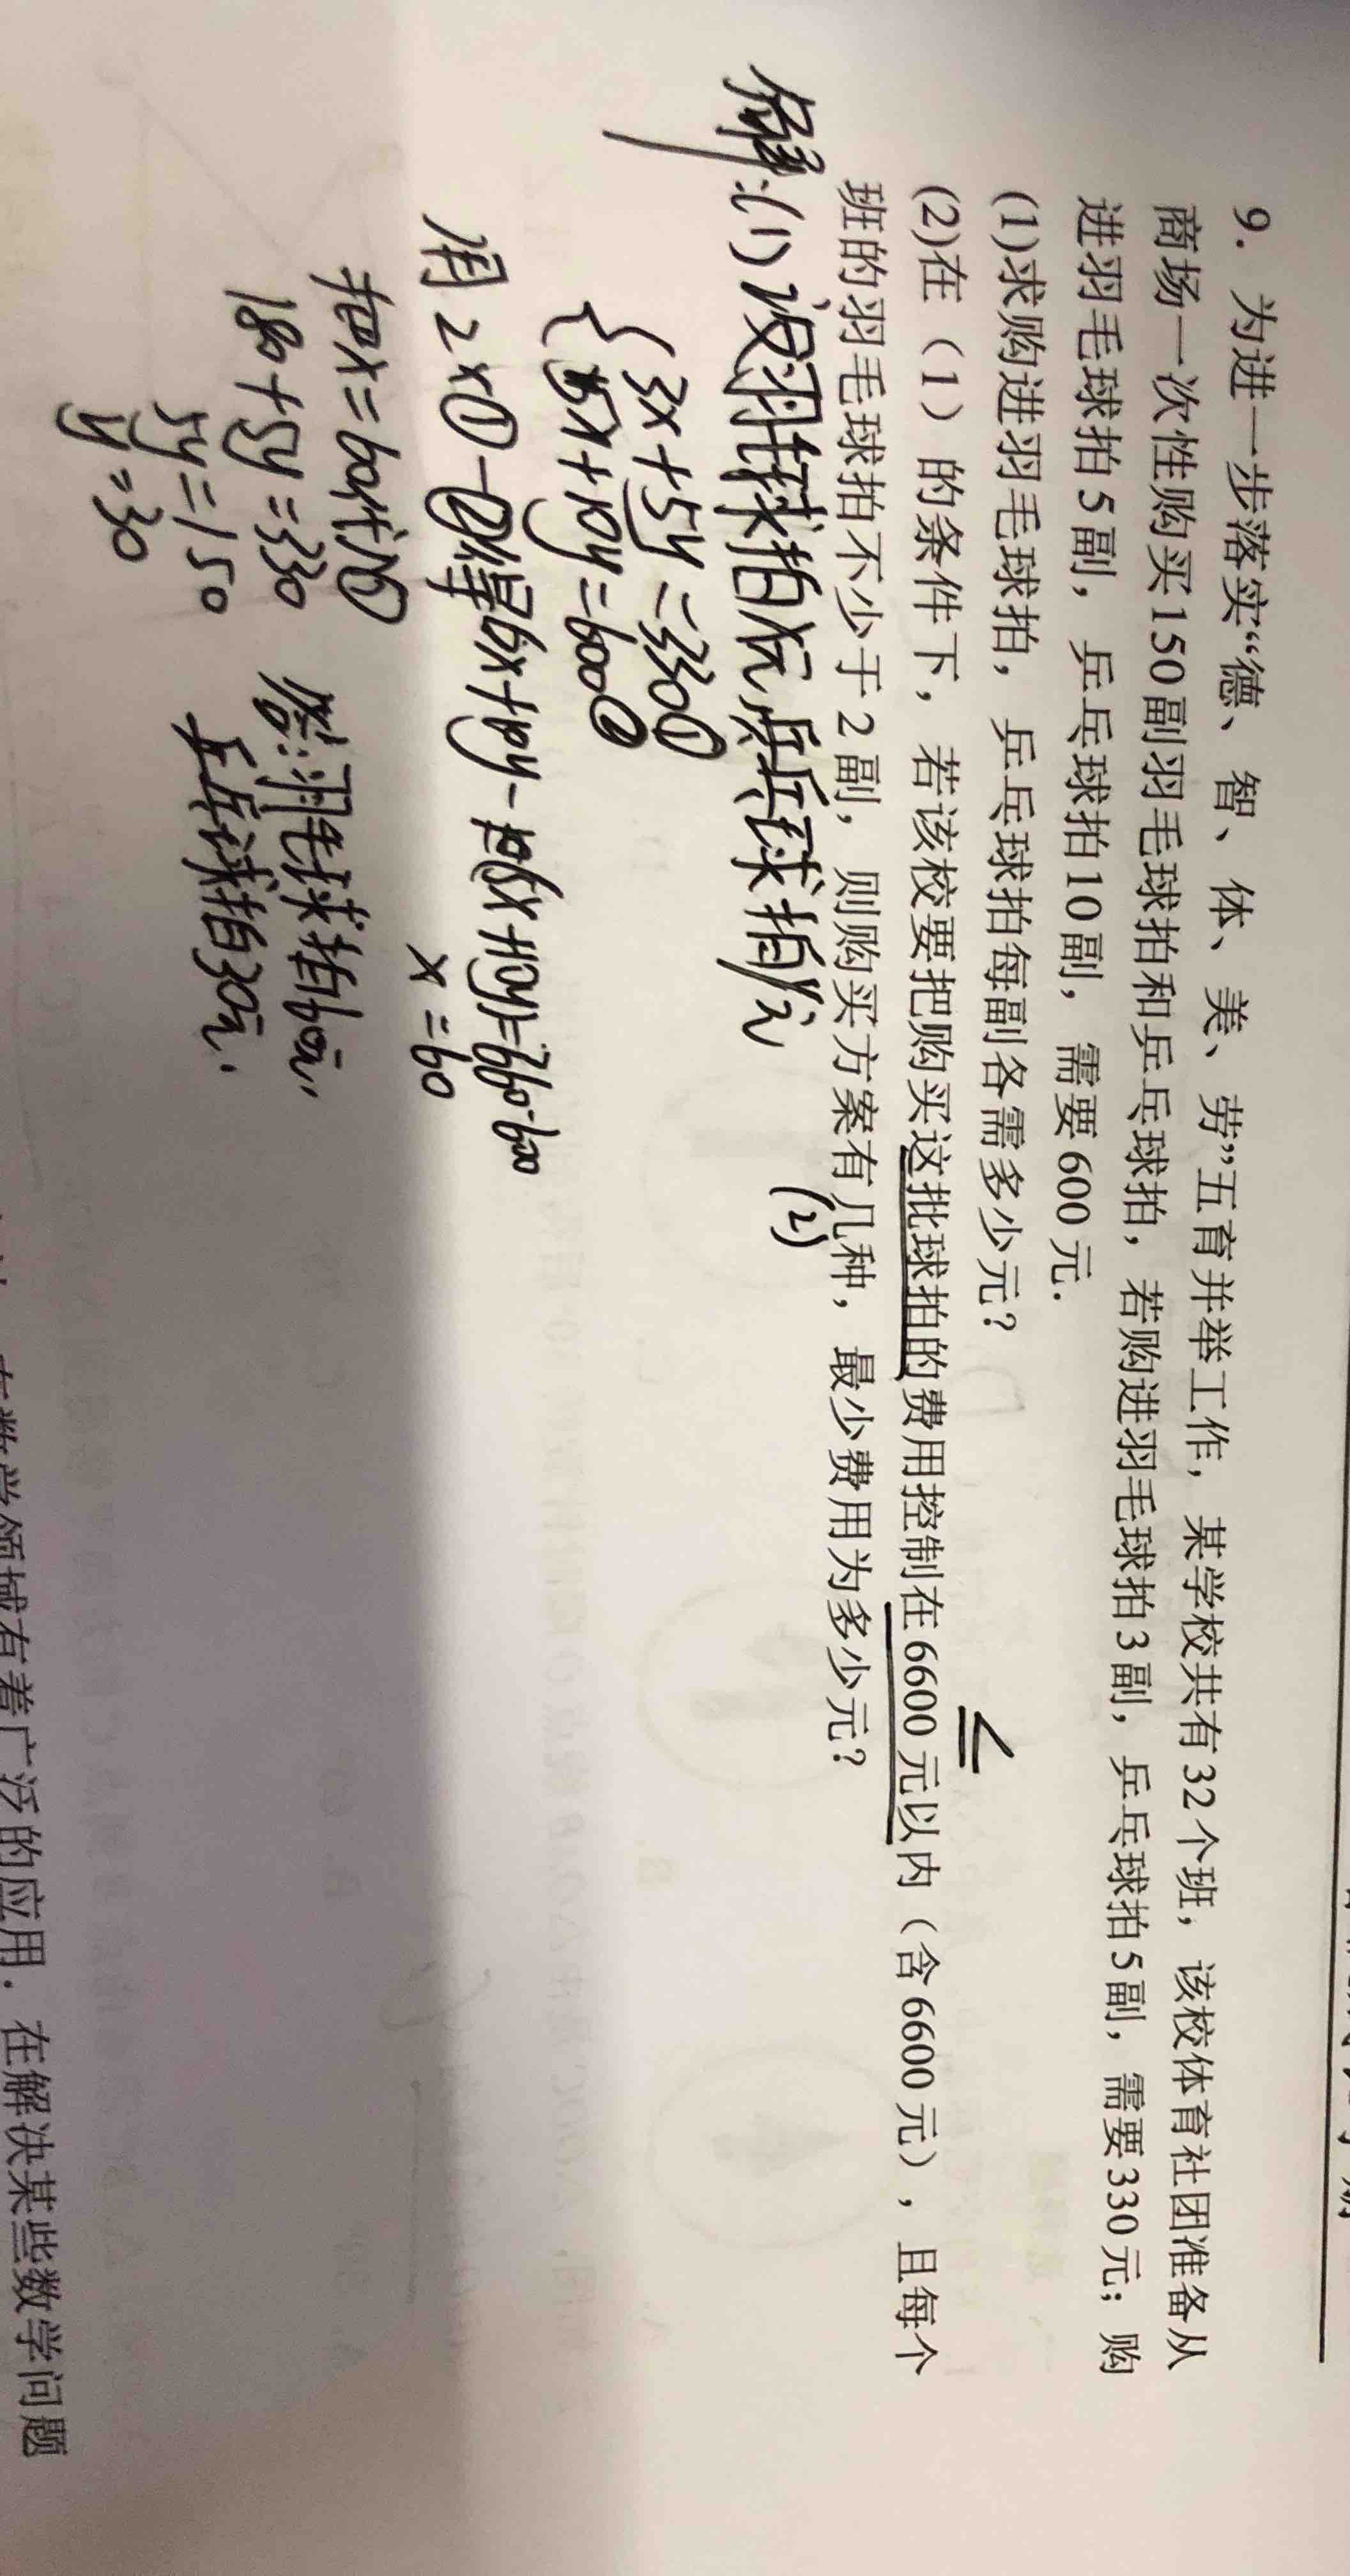 9. 为进一步落实“德、智、体、美、劳”五育并举工作，某学校共有32个班，该校体育社团准备从
商场一次性购买150副羽毛球拍和乒乓球拍，若购进羽毛球拍3副，乒乓球拍5副，需要330元；购
进羽毛球拍5副，乒乓球拍10副，需要600元.
(1)求购进羽毛球拍，乒乓球拍每副各需多少元？
(2)在（1）的条件下，若该校要把购买这批球拍的费用控制在6600元以内（含6600元），且每个
≤
班的羽毛球拍不少于2副，则购买方案有几种，最少费用为多少元？
解:(1)设羽毛球拍x元,乒乓球拍y元
(2)
{3x+5y=330①
5x+10y=600②
用2×①-②得6x+10y-(5x+10y)=660-600
x=60
把x=60代入①
180+5y=330
5y=150
y=30
答:羽毛球拍60元,
乒乓球拍30元.
在数学领域有着广泛的应用．在解决某些数学问题